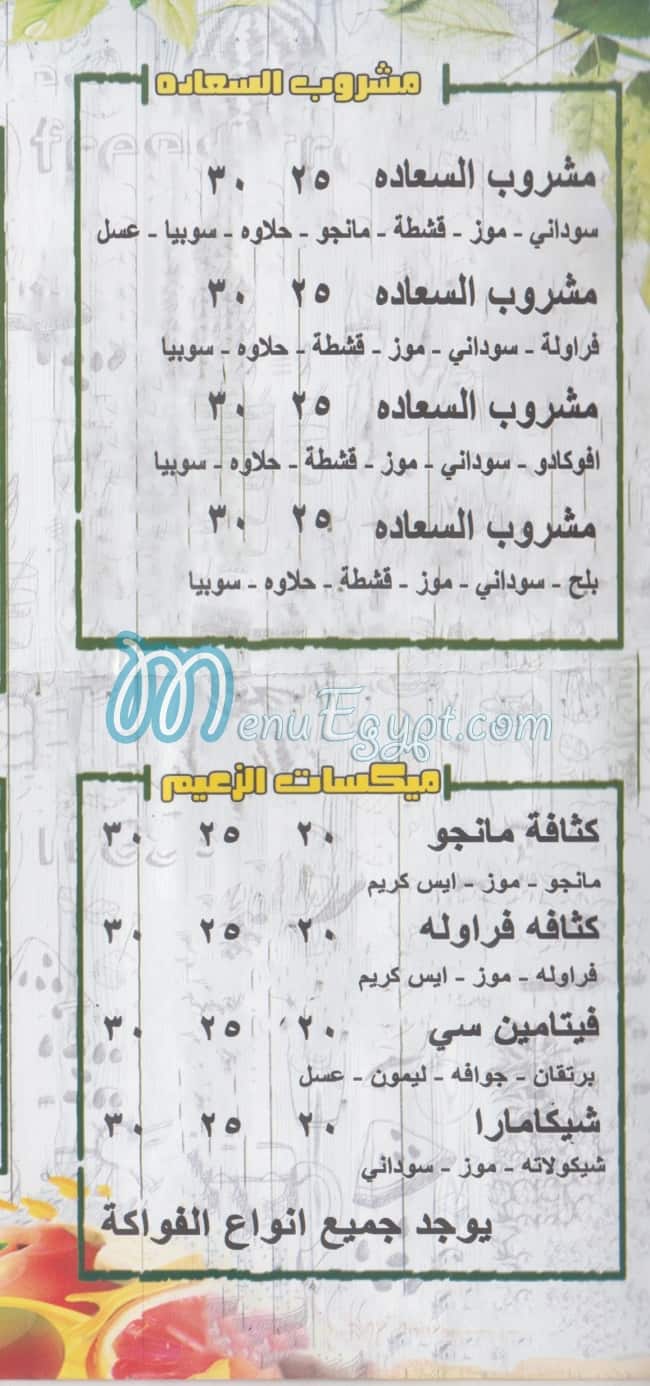 مشروب السعاده
مشروب السعاده ٢٥ ٣٠
سوداني - موز - قشطة - مانجو - حلاوه - سوبيا - عسل
مشروب السعاده ٢٥ ٣٠
فراولة - سوداني - موز - قشطة - حلاوه - سوبيا
مشروب السعاده ٢٥ ٣٠
افوكادو - سوداني - موز - قشطة - حلاوه - سوبيا
مشروب السعاده ٢٥ ٣٠
بلح - سوداني - موز - قشطة - حلاوه - سوبيا
MenuEgypt.com
ميكسات الزعيم
كثافة مانجو ٢٠ ٢٥ ٣٠
مانجو - موز - ايس كريم
كثافه فراوله ٢٠ ٢٥ ٣٠
فراوله - موز - ايس كريم
فيتامين سي ٢٠ ٢٥ ٣٠
برتقان - جوافه - ليمون - عسل
شيكامارا ٢٠ ٢٥ ٣٠
شيكولاته - موز - سوداني
يوجد جميع انواع الفواكة